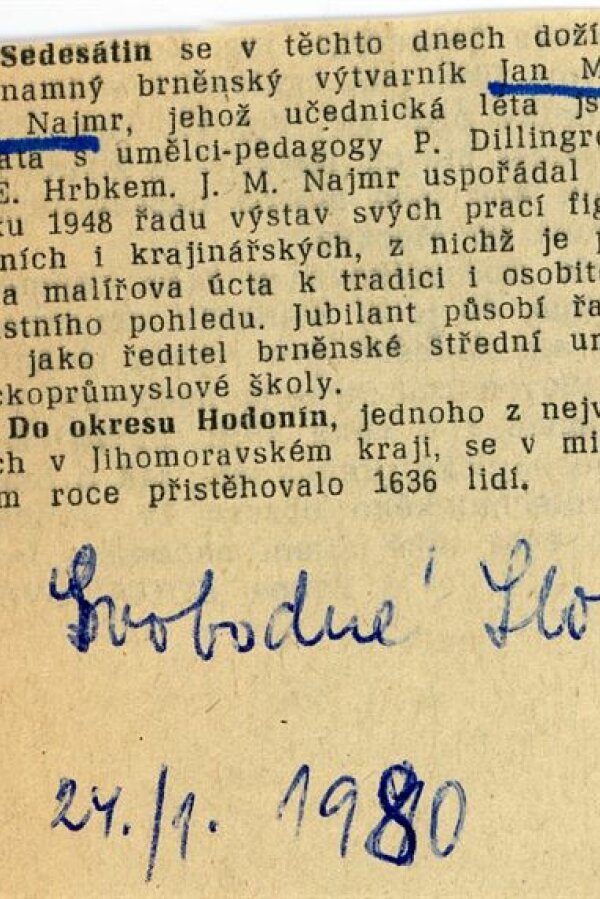 Sedesátin se v těchto dnech doží
namný brněnský výtvarník Jan M
Najmr, jehož učednická léta js
ata s umělci-pedagogy P. Dillingre
E. Hrbkem. J. M. Najmr uspořádal
ku 1948 řadu výstav svých prací fig
ních i krajinářských, z nichž je p
a malířova úcta k tradici i osobito
stního pohledu. Jubilant působí řa
jako ředitel brněnské střední um
ckoprůmyslové školy.
Do okresu Hodonín, jednoho z nejv
ch v Jihomoravském kraji, se v mi
m roce přistěhovalo 1636 lidí.
Svobodné Slo
24./1. 1980